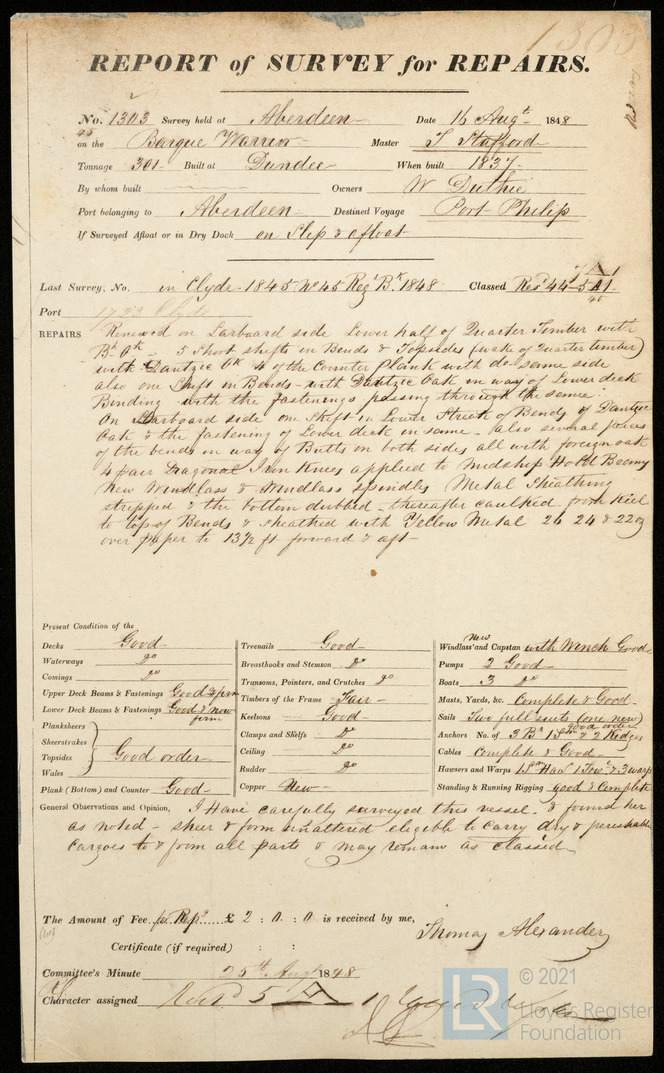 1303
REPORT of SURVEY for REPAIRS.
No. 1303 Survey held at Aberdeen Date 16 Augt 1848
on the Barque Warrior Master J Stafford
Tonnage 301 Built at Dundee When built 1837
By whom built Owners W Duthie
Port belonging to Aberdeen Destined Voyage Port Philip
If Surveyed Afloat or in Dry Dock on Slip & afloat
Last Survey, No. in Clyde 1845 No 45 Regr Bk 1848 Classed Resd 44-5 A1.
Port Clyde
REPAIRS Renewed on Larboard side Lower half of Quarter Timber with
Bh Ok 5 Short shifts in Bends & Topsides (wake of Quarter timber)
with Dantzic Ok 4 of the Counter plank with do same side
also one Shift in Bends with Dantzic Oak in way of Lower deck
Binding with the fastenings passing through the same.
On Starboard side one Shift in Lower Streek of Bends of Dantzic
Oak & the fastening of Lower deck in same - also several pieces
of the bends in way of Butts on both sides all with foreign oak
4 pair Diagonal Iron Knees applied to midship Hold Beams
New Windlass & Windlass spindles Metal Sheathing
stripped & the bottom dubbed - thereafter caulked from Keel
to top of Bends & sheathed with Yellow Metal 26 24 & 22 oz
over paper to 13½ ft forward & aft -
Present Condition of the
Decks Good
Waterways Do
Comings Do
Upper Deck Beams & Fastenings Good & firm
Lower Deck Beams & Fastenings Good & now firm
Planksheers
Sheerstrakes
Topsides
Wales
Good order
Plank (Bottom) and Counter Good
Treenails Good
Breasthooks and Stemson Do
Transoms, Pointers, and Crutches Do
Timbers of the Frame Fair
Keelsons Good
Clamps and Shelfs Do
Ceiling Do
Rudder Do
Copper New
New
Windlass and Capstan with Winch Good
Pumps 2 Good
Boats 3 Do
Masts, Yards, &c. Complete & Good
Sails Two full suits (one new)
good order
Anchors No. of 3 Br 1 Stm & 2 Kedges
Cables Complete & Good
Hawsers and Warps 1 Sm Haw 1 Tow & 3 warps
Standing & Running Rigging good & Complete
General Observations and Opinion, I Have carefully surveyed this vessel & found her
as noted - sheer & form unaltered eligible to carry dry & perishable
Cargoes to & from all parts & may remain as classed
The Amount of Fee for Rep. £ 2 : 0 : 0 is received by me,
Thomas Alexander
Certificate (if required) : :
Committee's Minute 25th Augt 1848
Character assigned 5 A 1
LR © 2021
Lloyd's Register
Foundation